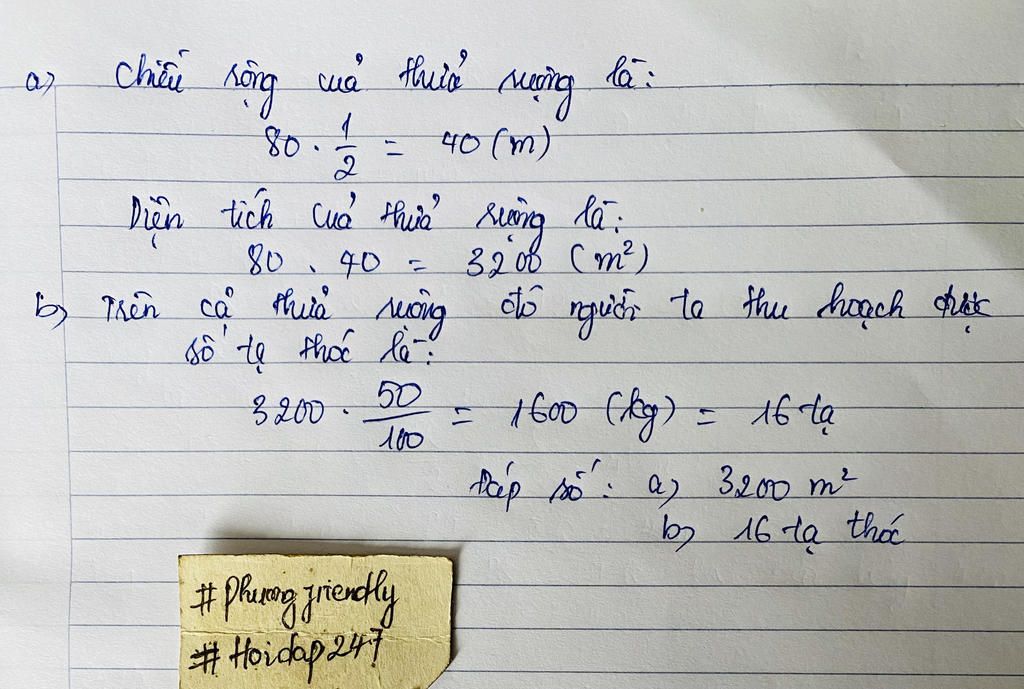 a) Chiều rộng của thửa ruộng là:
80 . 1/2 = 40 (m)
Diện tích của thửa ruộng là:
80 . 40 = 3200 (m²)
b) Trên cả thửa ruộng đó người ta thu hoạch được
số tạ thóc là:
3200 . 50/100 = 1600 (kg) = 16 tạ
Đáp số: a) 3200 m²
b) 16 tạ thóc
#Phuongfriendly
#Hoidap247